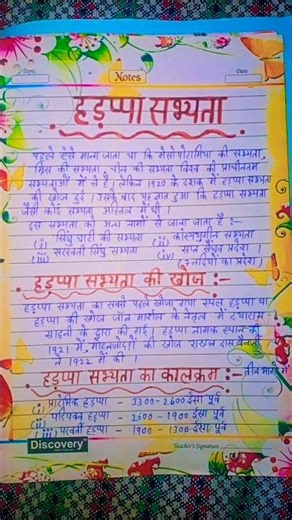 Topic
Notes
Date
हड़प्पा सभ्यता
पहले ऐसे माना जाता था कि मेसोपोटामिया की सभ्यता,
मिस्र की सभ्यता, चीन की सभ्यता विश्व की प्राचीनतम
सभ्यताओं में से है। लेकिन 1920 के दशक में हड़प्पा सभ्यता
की खोज हुई। उसके बाद यह ज्ञात हुआ कि हड़प्पा सभ्यता
जैसी कोई सभ्यता अस्तित्व में थी।
इस सभ्यता को अन्य नामों से जाना जाता है :-
(i) सिंधु घाटी की सभ्यता (ii) कांस्ययुगीन सभ्यता
(iii) सरस्वती सिंधु सभ्यता (iv) सप्त सैंधव प्रदेश।
(7 नदियों का प्रदेश)
हड़प्पा सभ्यता की खोज :-
हड़प्पा सभ्यता का सबसे पहले खोजा गया स्थल हड़प्पा था
हड़प्पा की खोज जॉन मार्शल के नेतृत्व में दयाराम
साहनी के द्वारा की गई। हड़प्पा नामक स्थान की
1921 में, मोहनजोदड़ो की खोज राखल दास बैनर्जी
ने 1922 में की।
हड़प्पा सभ्यता का कालक्रम :- तीन भागों में
(i) प्रारंभिक हड़प्पा - 3300 - 2600 ईसा पूर्व
(ii) परिपक्व हड़प्पा - 2600 - 1900 ईसा पूर्व
(iii) परवर्ती हड़प्पा - 1900 - 1300 ईसा पूर्व
Discovery
Teacher's Signature